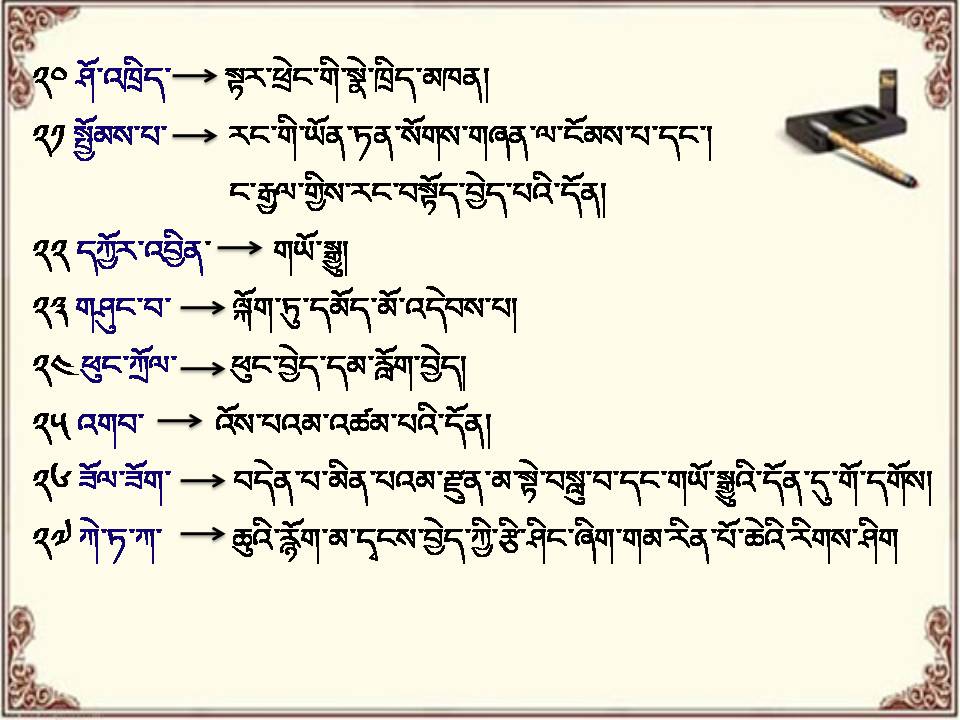 ༢༠ ཤོ་འཁྲིད་ → སྟར་ཕྲེང་གི་སྣེ་ཁྲིད་མཁན།
༢༡ སྤྱོམས་པ་ → རང་གི་ཡོན་ཏན་སོགས་གཞན་ལ་ངོམས་པ་དང་།
ང་རྒྱལ་གྱིས་རང་བསྟོད་བྱེད་པའི་དོན།
༢༢ དཀྱོར་འབྱིན་ → གཡོ་སྒྱུ།
༢༣ གཤུང་བ་ → ལྐོག་ཏུ་དམོད་མོ་འདེབས་པ།
༢༤ ཕུང་ཀྲོལ་ → ཕུང་བྱེད་དམ་རློག་བྱེད།
༢༥ འགབ་ → འོས་པའམ་འཚམ་པའི་དོན།
༢༦ ཟོལ་ཟོག་ → བདེན་པ་མིན་པའམ་རྫུན་མ་སྟེ་བསླུ་བ་དང་གཡོ་སྒྱུའི་དོན་དུ་གོ་དགོས།
༢༧ ཀེ་ཏ་ཀ་ → ཆུའི་རྙོག་མ་དྭངས་བྱེད་ཀྱི་རྩི་ཤིང་ཞིག་གམ་རིན་པོ་ཆེའི་རིགས་ཤིག